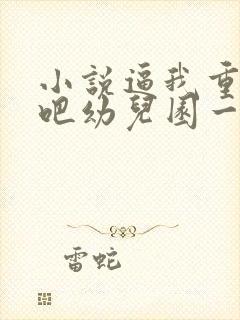 小說逼我重
吧幼兒園一
雷蛇